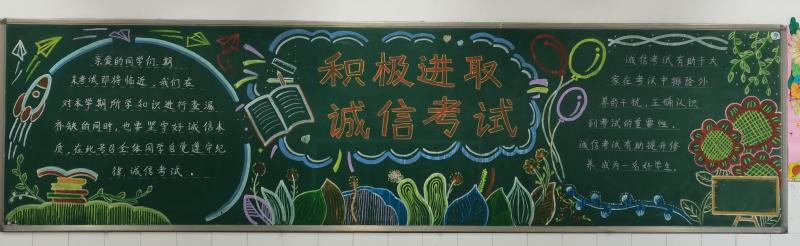 亲爱的同学们,期
末考试即将临近,我们在
对本学期所学知识进行查漏
补缺的同时,也要坚守好诚信本
质,在此号召全体同学自觉遵守纪
律,诚信考试.
积极进取
诚信考试
诚信考试有助于大
家在考试中排除外
界的干扰,正确认识
到考试的重要性.
诚信考试有助提升修
养 成为一名好学生.